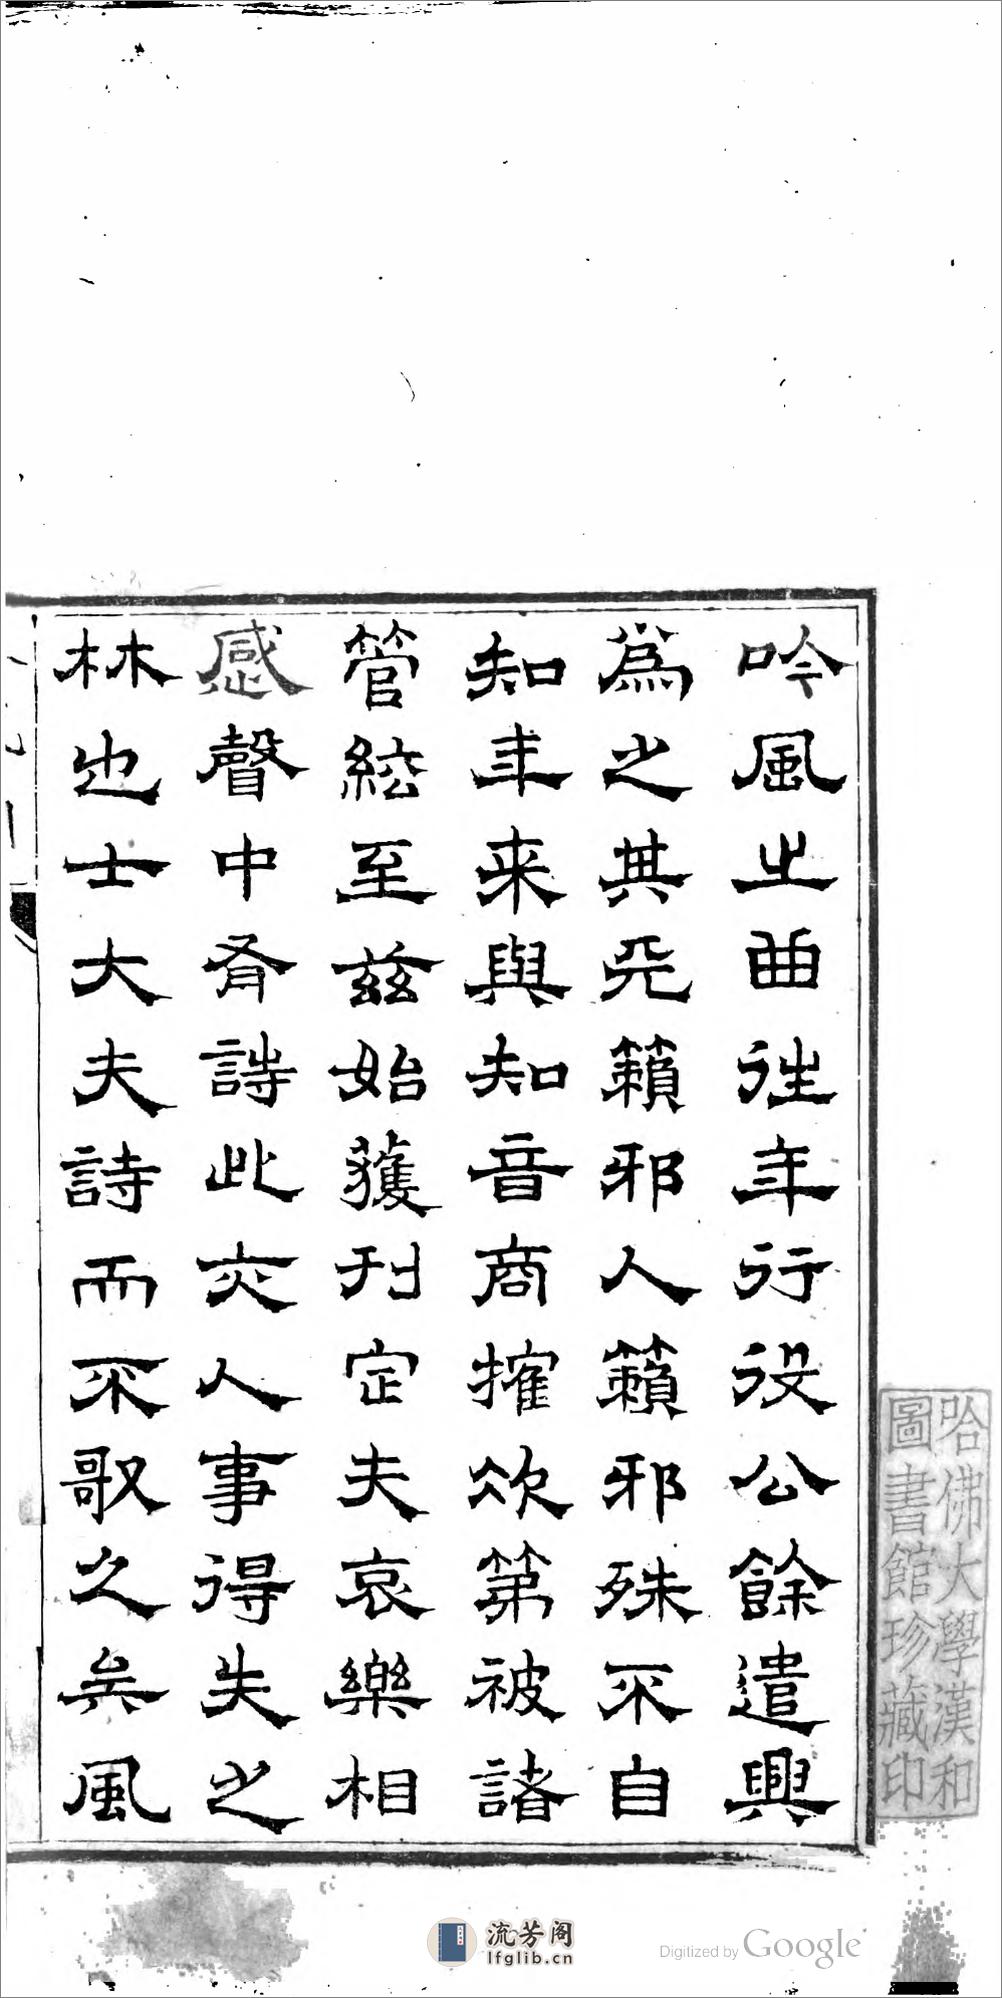 吟風之曲往年行役公餘遣興
爲之其天籟邪人籟邪殊不自
知年来與知音商搉次第被諸
管絃至茲始獲刊定夫哀樂相
感聲中有詩此亦人事得失之
林也士大夫詩而不歌久矣風
哈佛大學漢和
圖書館珍藏印
流芳阁
lfglib.cn
Digitized by Google